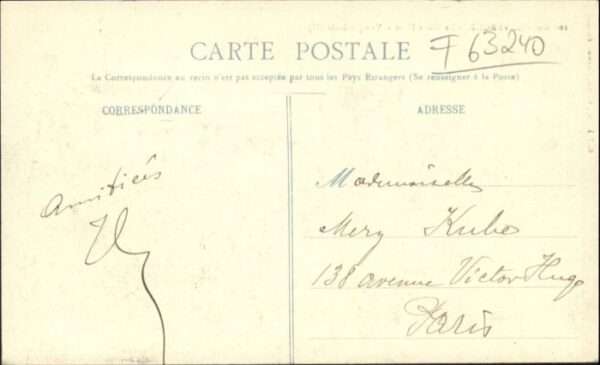 CARTE POSTALE
F 63240
La Correspondance au recto n'est pas acceptée par tous les Pays Etrangers (Se renseigner à la Poste)
CORRESPONDANCE
ADRESSE
Amitiés
Mademoiselle
Mery Kube
138 avenue Victor Hugo
Paris